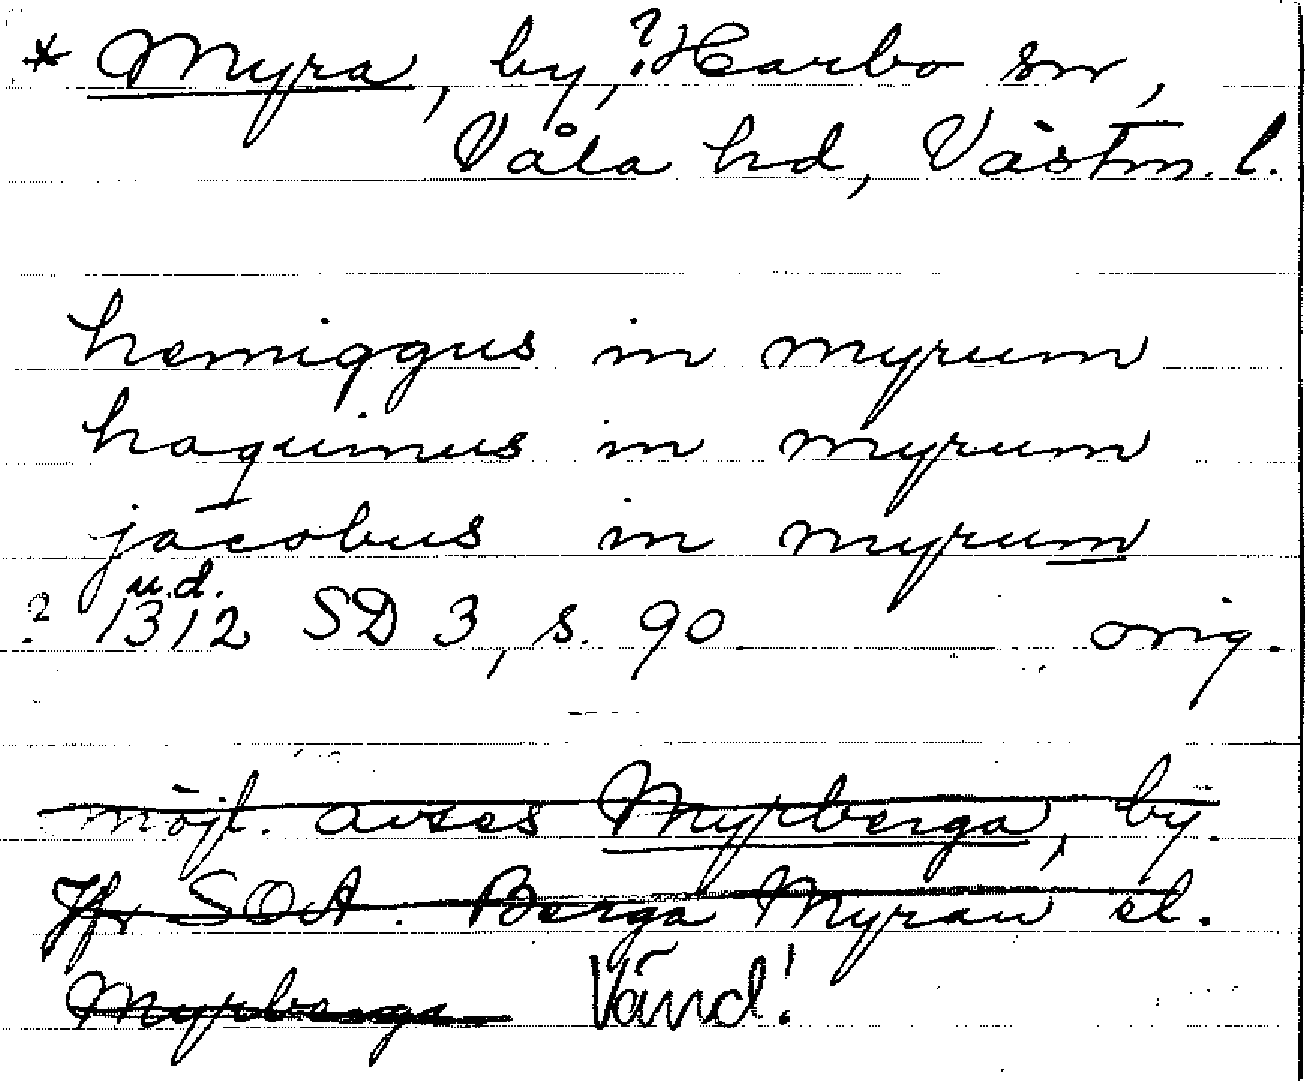 * Myra, by, ? Harbo sn,
Våla hd, Västm. l.
hemiggus in myrum
haquinus in myrum
jacobus in myrum
u.d.
? 1312 SD 3, s. 90 orig.
möjl. avses Myrberga, by.
Jfr SOA. Berga Myran el.
Myrberga Vänd!